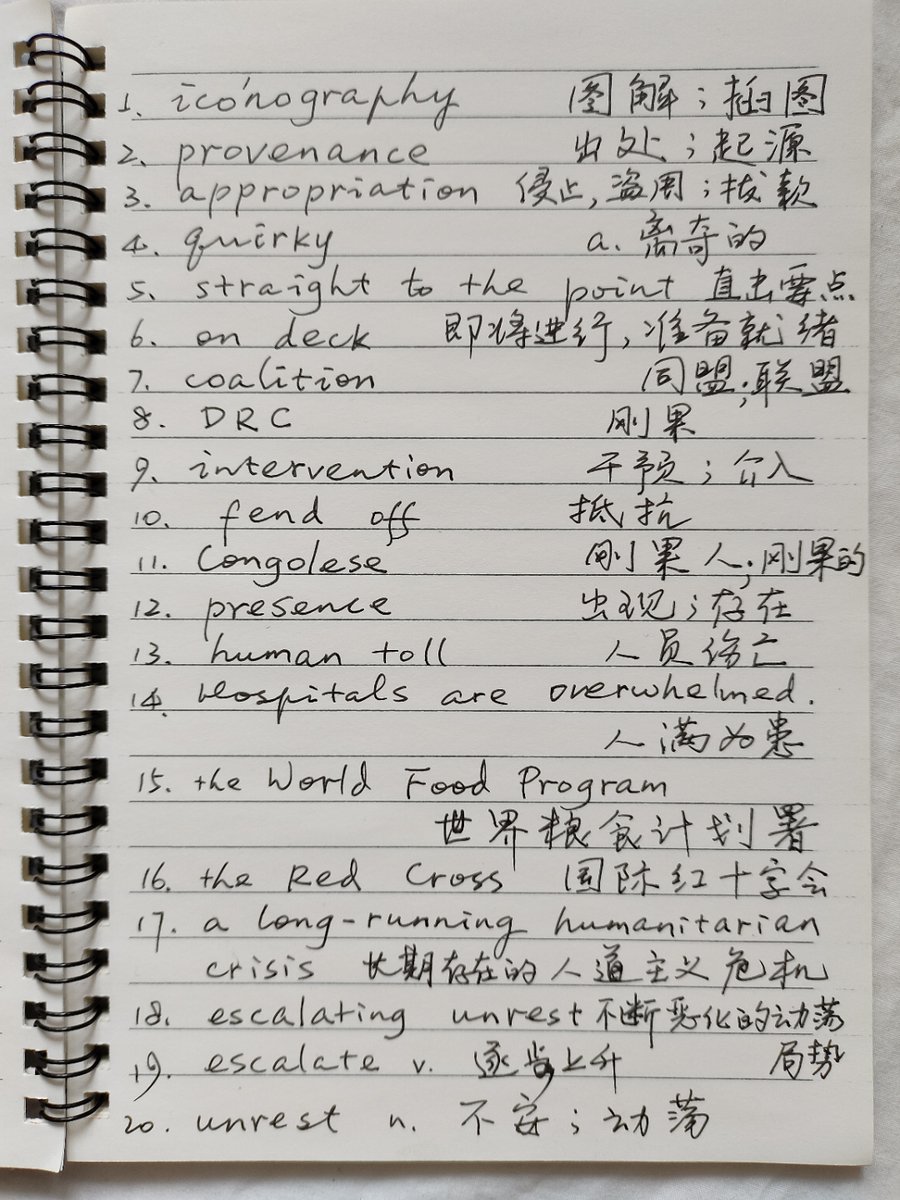 1. iconography 图解；插图
2. provenance 出处；起源
3. appropriation 侵占,盗用；拨款
4. quirky a. 离奇的
5. straight to the point 直击要点
6. on deck 即将进行,准备就绪
7. coalition 同盟；联盟
8. DRC 刚果
9. intervention 干预；介入
10. fend off 抵抗
11. Congolese 刚果人；刚果的
12. presence 出现；存在
13. human toll 人员伤亡
14. Hospitals are overwhelmed.
人满为患
15. the World Food Program
世界粮食计划署
16. the Red Cross 国际红十字会
17. a long-running humanitarian
crisis 长期存在的人道主义危机
18. escalating unrest 不断恶化的动荡
19. escalate v. 逐步上升 局势
20. unrest n. 不安；动荡